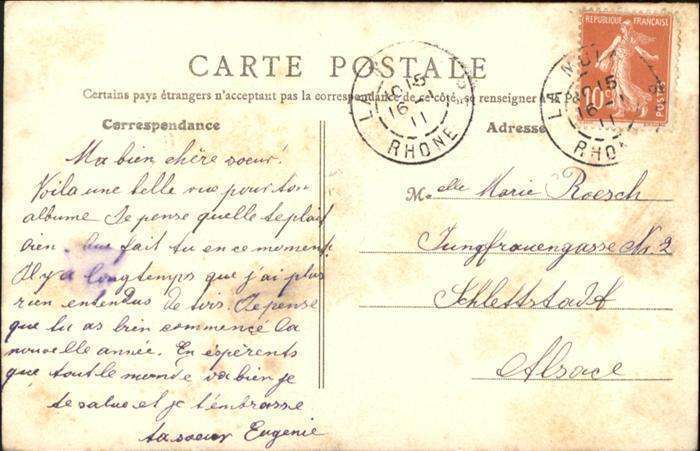 CARTE POSTALE
Certains pays étrangers n'acceptant pas la correspondance de ce côté, se renseigner à la
Correspondance
Ma bien chère soeur!
Voila une belle vue pour ton
albume Je pense quelle te plait
bien. Que fait tu en ce moment
Il y a longtemps que j'ai plus
rien entendus de tois. Je pense
que tu as bien commencé la
nouvelle année. En espérents
que tout le monde va bien je
te salue et je t'embrasse
ta soeur Eugenie
Adresse
M.elle Marie Roesch
Jungfrauengasse Nr. 2
Schlettstadt
Alsace
LA
15
16
11
RHONE
REPUBLIQUE FRANÇAISE
10
POSTES
LA MU
15
16
11
RHO